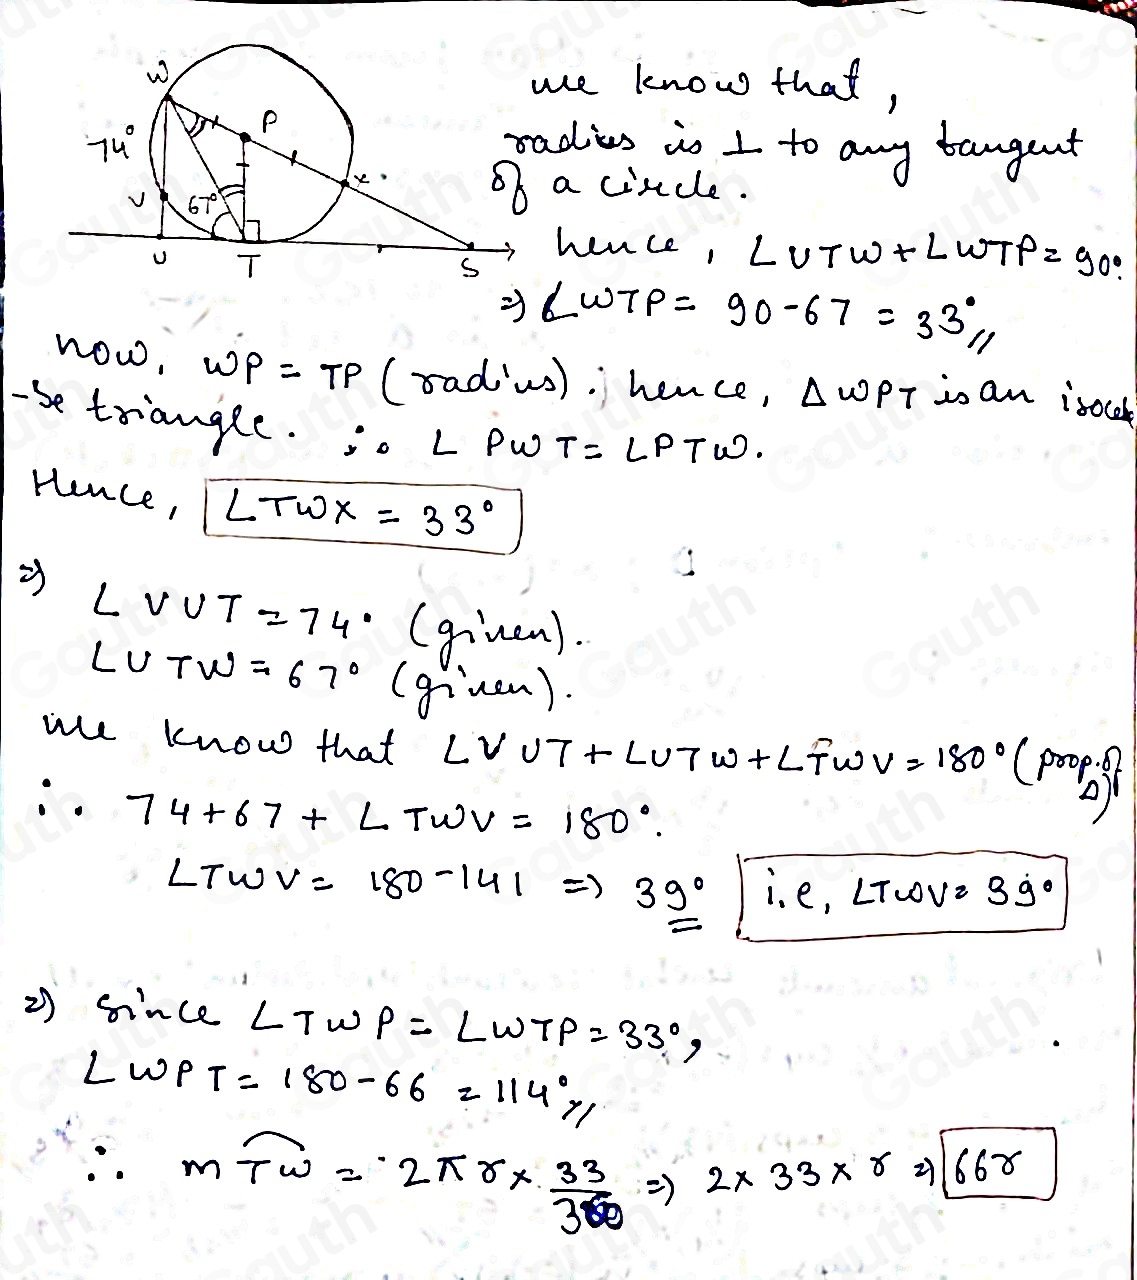 W
P
74°
x
V
67°
U
T
S
we know that,
radius is ⊥ to any tangent
of a circle.
hence, ∠UTW+∠WTP=90°.
⇒ ∠WTP = 90-67 = 33°//
now, WP = TP (radius). ; hence, △WPT is an isocele
-se triangle. ∴ ∠PWT=∠PTW.
Hence, ∠TWX = 33°
⇒
∠VUT = 74° (given).
∠UTW = 67° (given).
we know that ∠VUT+∠UTW+∠TWV=180° (prop.of △)
∴ 74+67+∠TWV = 180°.
∠TWV = 180-141 ⇒ 39° i.e, ∠TWV= 39°
2) Since ∠TWP = ∠WTP = 33°,
∠WPT = 180-66 = 114°//
∴ m TW = 2πr× 33/360 ⇒ 2×33×r ⇒ 66r
Gauth